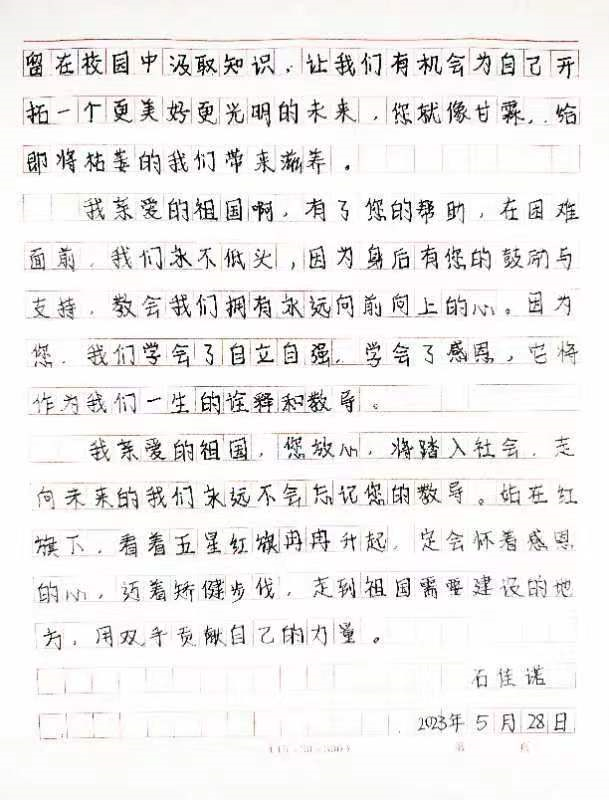 留在校园中汲取知识，让我们有机会为自己开
拓一个更美好更光明的未来，您就像甘霖，给
即将枯萎的我们带来滋养。
我亲爱的祖国啊，有了您的帮助，在困难
面前，我们永不低头，因为身后有您的鼓励与
支持，教会我们拥有永远向前向上的心。因为
您，我们学会了自立自强，学会了感恩，它将
作为我们一生的诠释和教导。
我亲爱的祖国，您放心，将踏入社会，走
向未来的我们永远不会忘记您的教导。站在红
旗下，看着五星红旗冉冉升起，定会怀着感恩
的心，迈着矫健步伐，走到祖国需要建设的地
方，用双手贡献自己的力量。
石佳诺
2023年5月28日